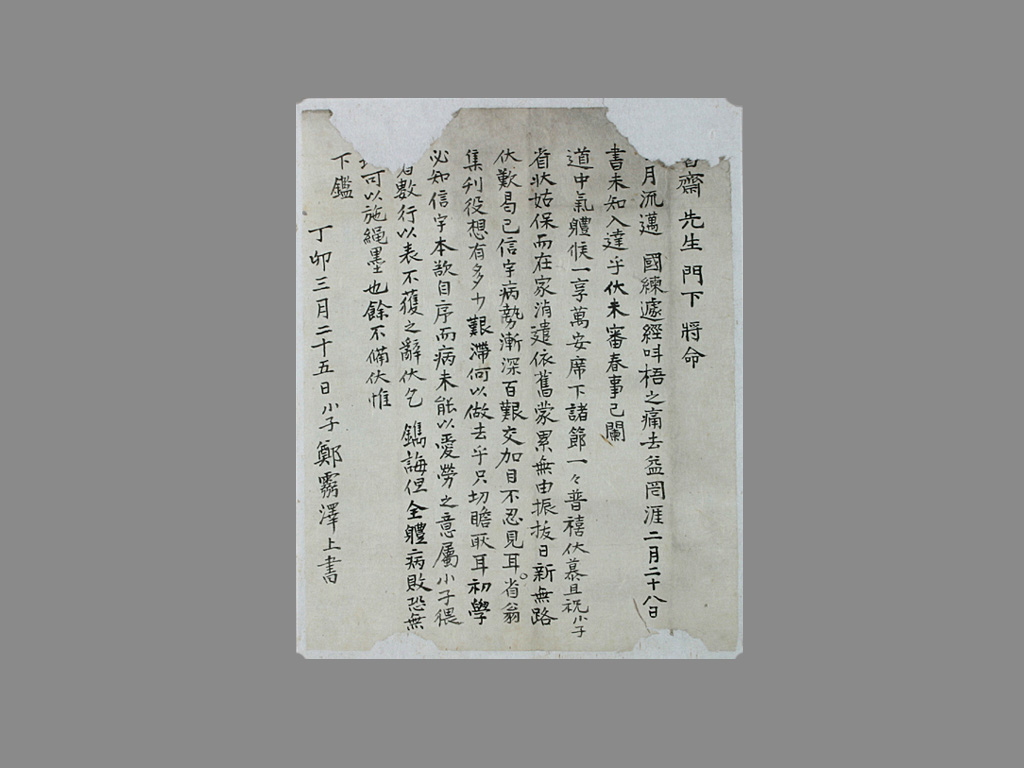 齋 先生 門下 將命
月流邁 國練遽經 呌梧之痛去益罔涯二月二十八日
書未知入達乎伏未審春事已闌
道中氣體候一享萬安席下諸節一々普禧伏慕且祝小子
省狀姑保而在家消遣依舊蒙累無由振拔日新無路
伏歎曷已信宇病勢漸深百艱交加目不忍見耳省翁
集刋役想有多少艱滯何以做去乎只切瞻耿耳初學
必知信宇本欲自序而病未能以愛勞之意屬小子猥
數行以表不獲之辭伏乞 鐫誨但全體病敗恐無
可以施繩墨也餘不備伏惟
下鑑
丁卯三月二十五日小子鄭霱澤上書